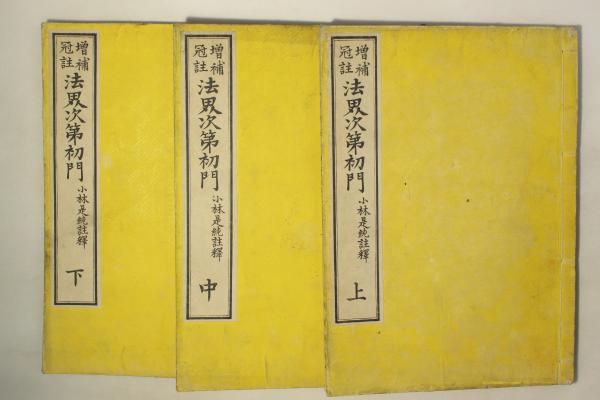 增補
冠註
法界次第初門
小林是純註釋
上
增補
冠註
法界次第初門
小林是純註釋
中
增補
冠註
法界次第初門
小林是純註釋
下